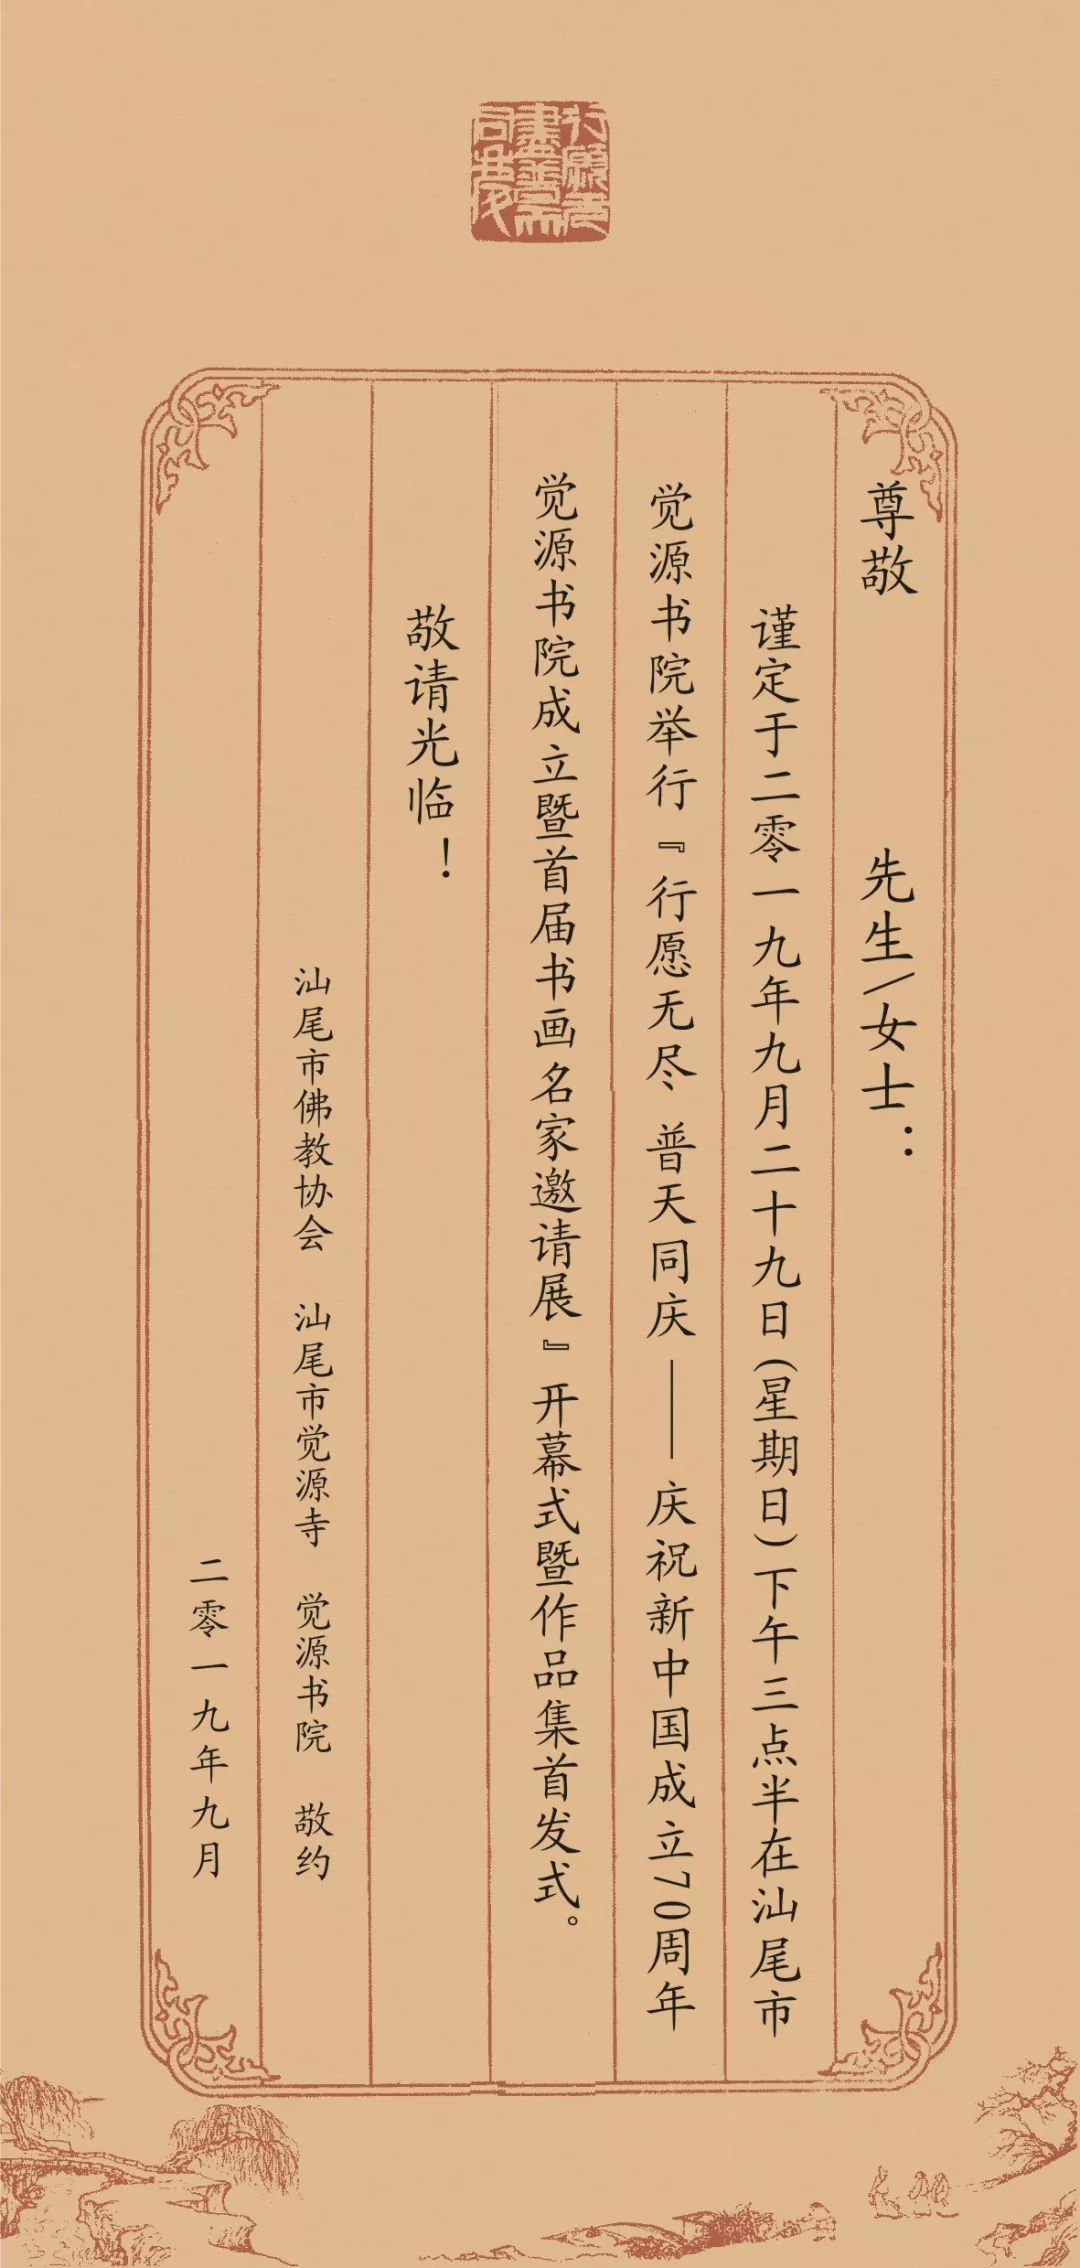 行愿无
尽普天
同庆
尊敬　　　　先生/女士：
谨定于二零一九年九月二十九日(星期日)下午三点半在汕尾市
觉源书院举行『行愿无尽 普天同庆——庆祝新中国成立70周年
觉源书院成立暨首届书画名家邀请展』开幕式暨作品集首发式。
敬请光临！
汕尾市佛教协会 汕尾市觉源寺 觉源书院 敬约
二零一九年九月